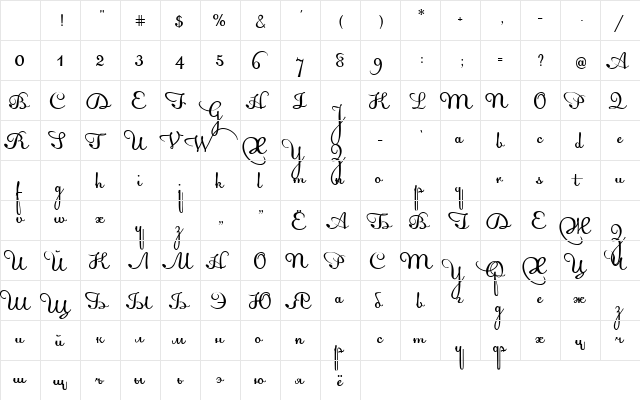 ! " # $ % & ' ( ) * + , - . /
0 1 2 3 4 5 6 7 8 9 : ; = ? @ A
B C D E F G H I J K L M N O P Q
R S T U V W X Y Z - ` a b c d e
f g h i j k l m n o p q r s t u
v w x y z „ ” Ё А Б В Г Д Е Ж З
И Й К Л М Н О П Р С Т У Ф Х Ц Ч
Ш Щ Ъ Ы Ь Э Ю Я а б в г д е ж з
и й к л м н о п р с т у ф х ц ч
ш щ ъ ы ь э ю я ё